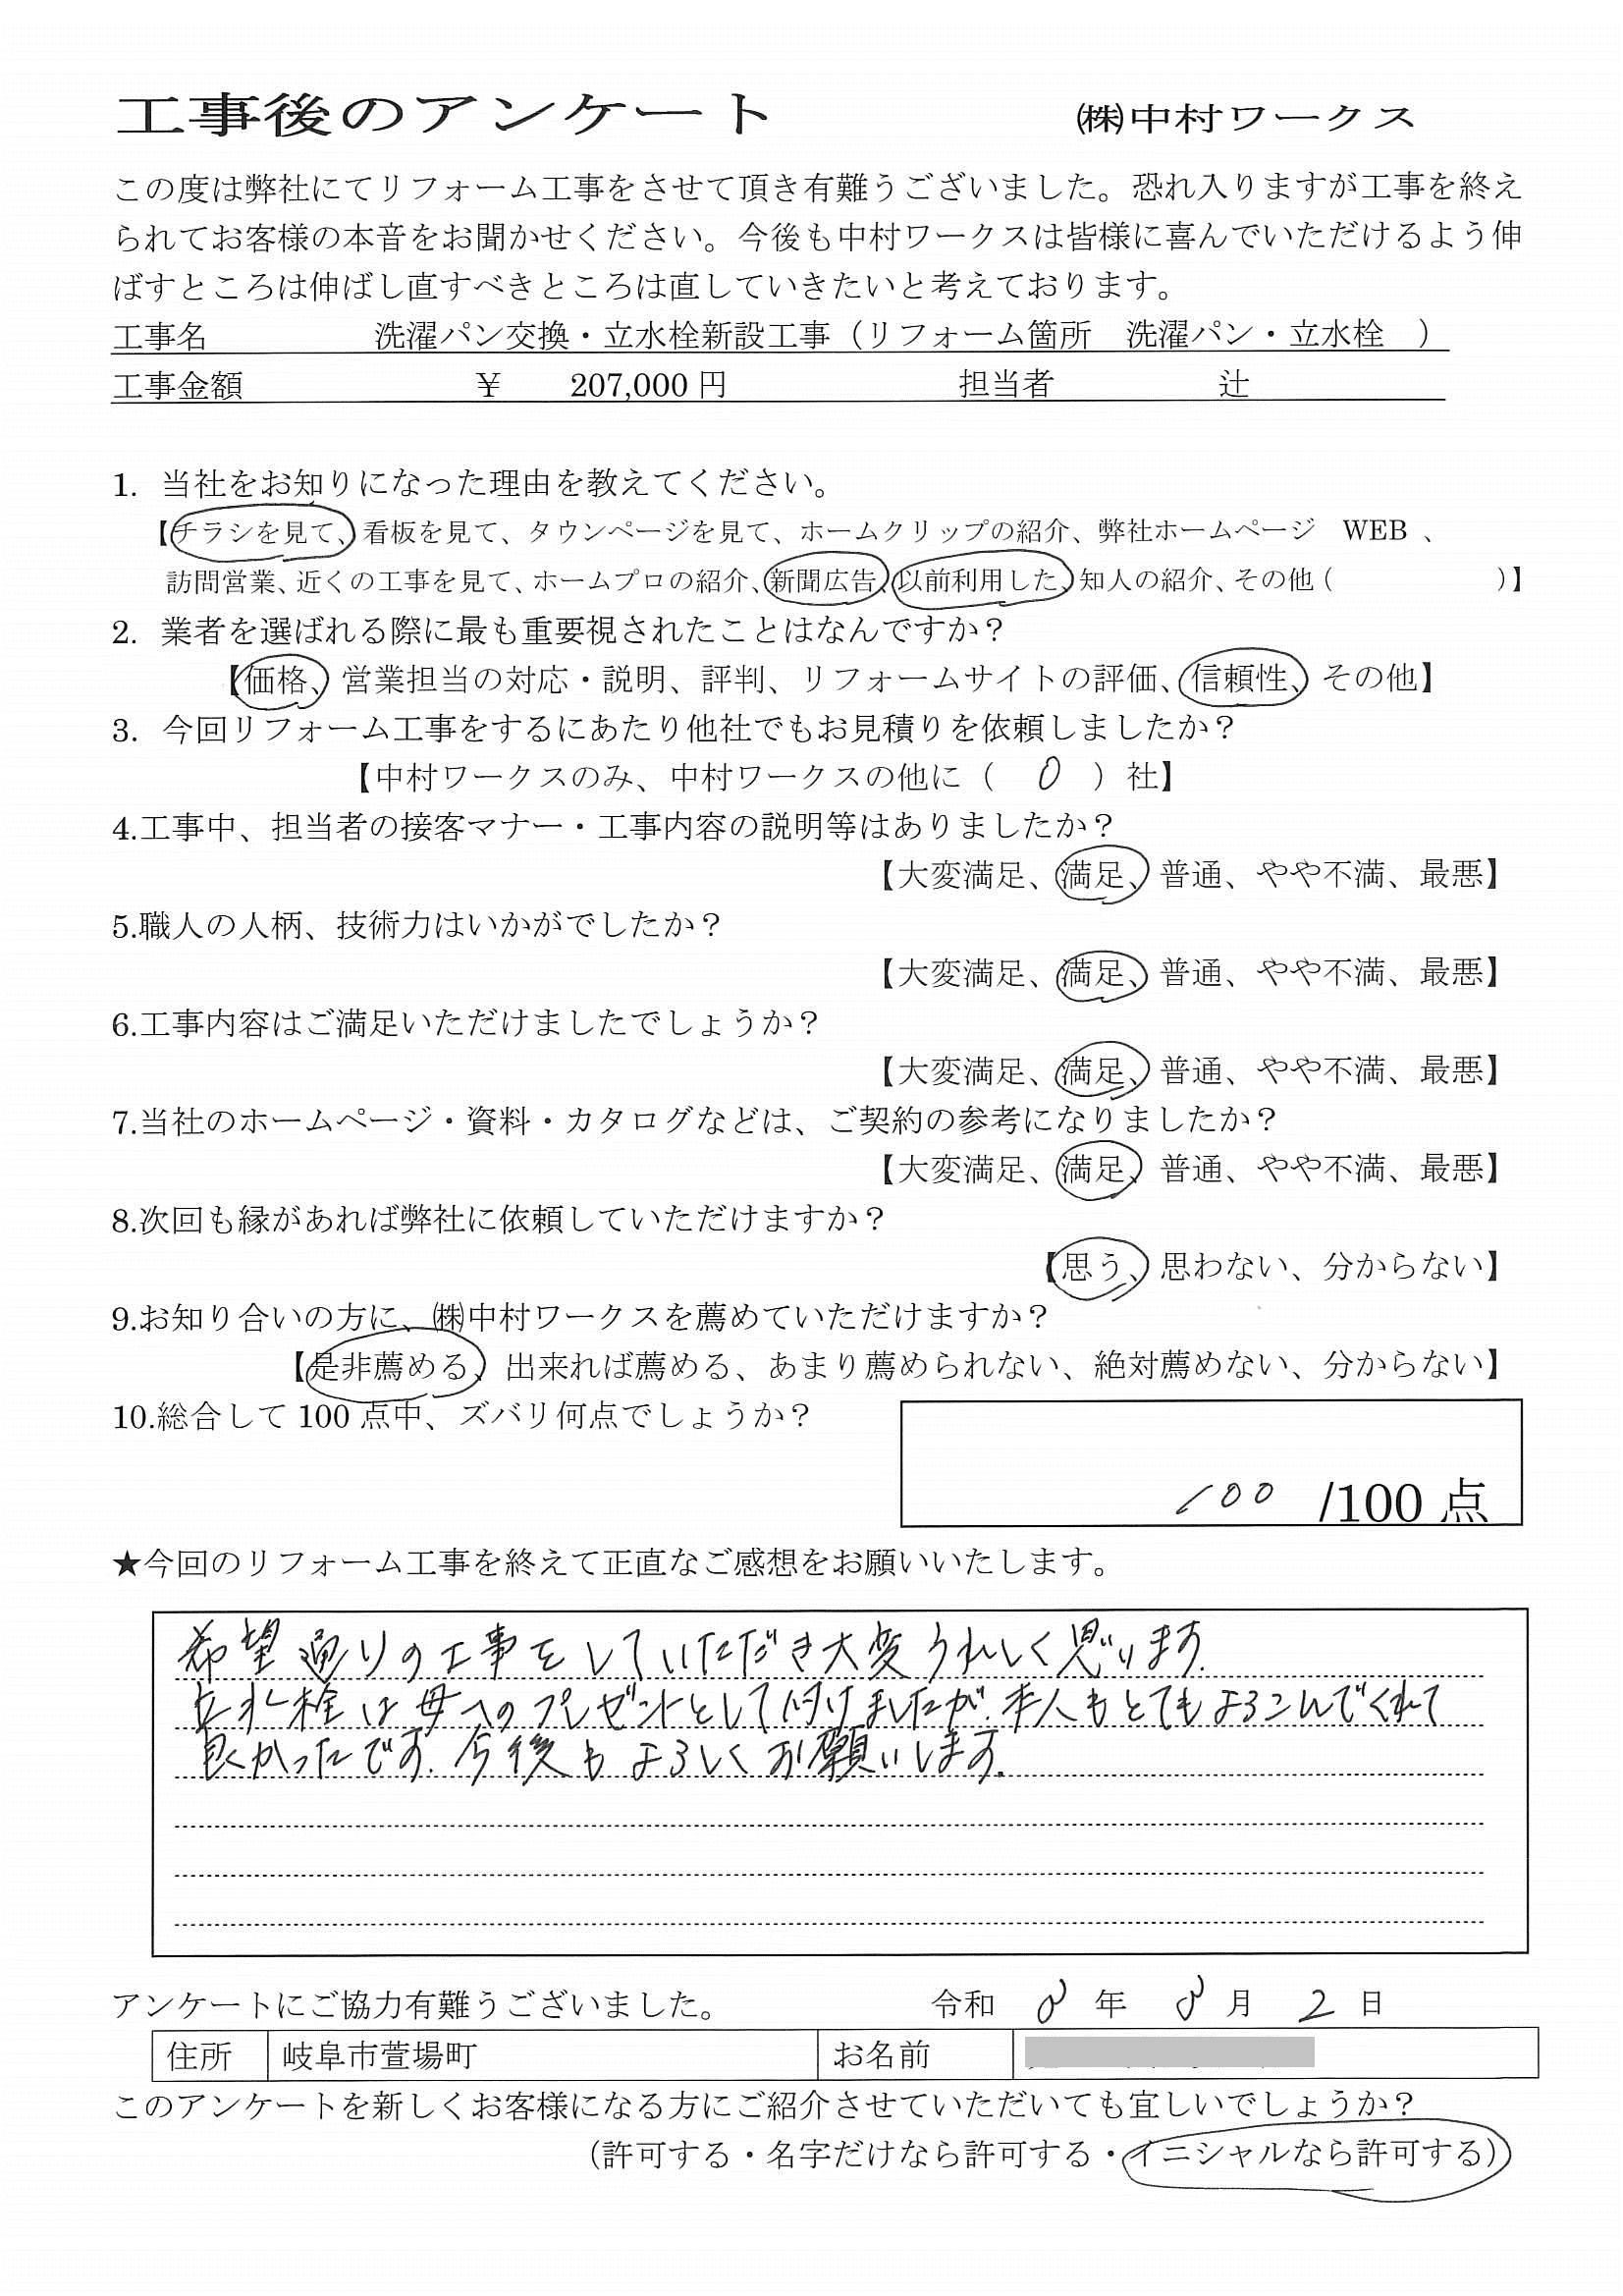 工事後のアンケート ㈱中村ワークス
この度は弊社にてリフォーム工事をさせて頂き有難うございました。恐れ入りますが工事を終え
られてお客様の本音をお聞かせください。今後も中村ワークスは皆様に喜んでいただけるよう伸
ばすところは伸ばし直すべきところは直していきたいと考えております。
工事名 洗濯パン交換・立水栓新設工事（リフォーム箇所 洗濯パン・立水栓 ）
工事金額 ￥ 207,000円 担当者 辻
1. 当社をお知りになった理由を教えてください。
【チラシを見て、看板を見て、タウンページを見て、ホームクリップの紹介、弊社ホームページ WEB 、
訪問営業、近くの工事を見て、ホームプロの紹介、新聞広告、以前利用した、知人の紹介、その他（ ）】
2. 業者を選ばれる際に最も重要視されたことはなんですか？
【価格、営業担当の対応・説明、評判、リフォームサイトの評価、信頼性、その他】
3. 今回リフォーム工事をするにあたり他社でもお見積りを依頼しましたか？
【中村ワークスのみ、中村ワークスの他に（ 0 ）社】
4.工事中、担当者の接客マナー・工事内容の説明等はありましたか？
【大変満足、満足、普通、やや不満、最悪】
5.職人の人柄、技術力はいかがでしたか？
【大変満足、満足、普通、やや不満、最悪】
6.工事内容はご満足いただけましたでしょうか？
【大変満足、満足、普通、やや不満、最悪】
7.当社のホームページ・資料・カタログなどは、ご契約の参考になりましたか？
【大変満足、満足、普通、やや不満、最悪】
8.次回も縁があれば弊社に依頼していただけますか？
【思う、思わない、分からない】
9.お知り合いの方に、㈱中村ワークスを薦めていただけますか？
【是非薦める、出来れば薦める、あまり薦められない、絶対薦めない、分からない】
10.総合して100点中、ズバリ何点でしょうか？
100 /100点
★今回のリフォーム工事を終えて正直なご感想をお願いいたします。
希望通りの工事をしていただき大変うれしく思います。
立水栓は母へのプレゼントとして付けましたが、本人もとてもよろこんでくれて
良かったです。今後もよろしくお願いします。
アンケートにご協力有難うございました。 令和 8 年 8 月 2 日
住所 岐阜市萱場町 お名前
このアンケートを新しくお客様になる方にご紹介させていただいても宜しいでしょうか？
（許可する・名字だけなら許可する・イニシャルなら許可する）